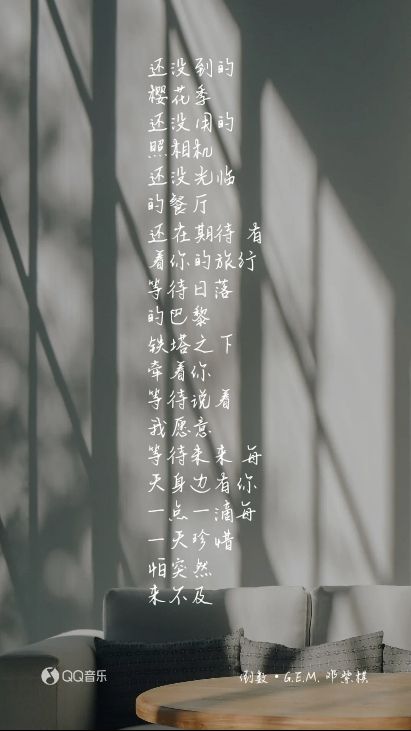 还没到的
樱花季
还没用的
照相机
还没光临
的餐厅
还在期待 有
着你的旅行
等待日落
的巴黎
铁塔之下
牵着你
等待说着
我愿意
等待未来 每
天身边有你
一点一滴每
一天珍惜
怕突然
来不及
QQ音乐
倒数·G.E.M. 邓紫棋